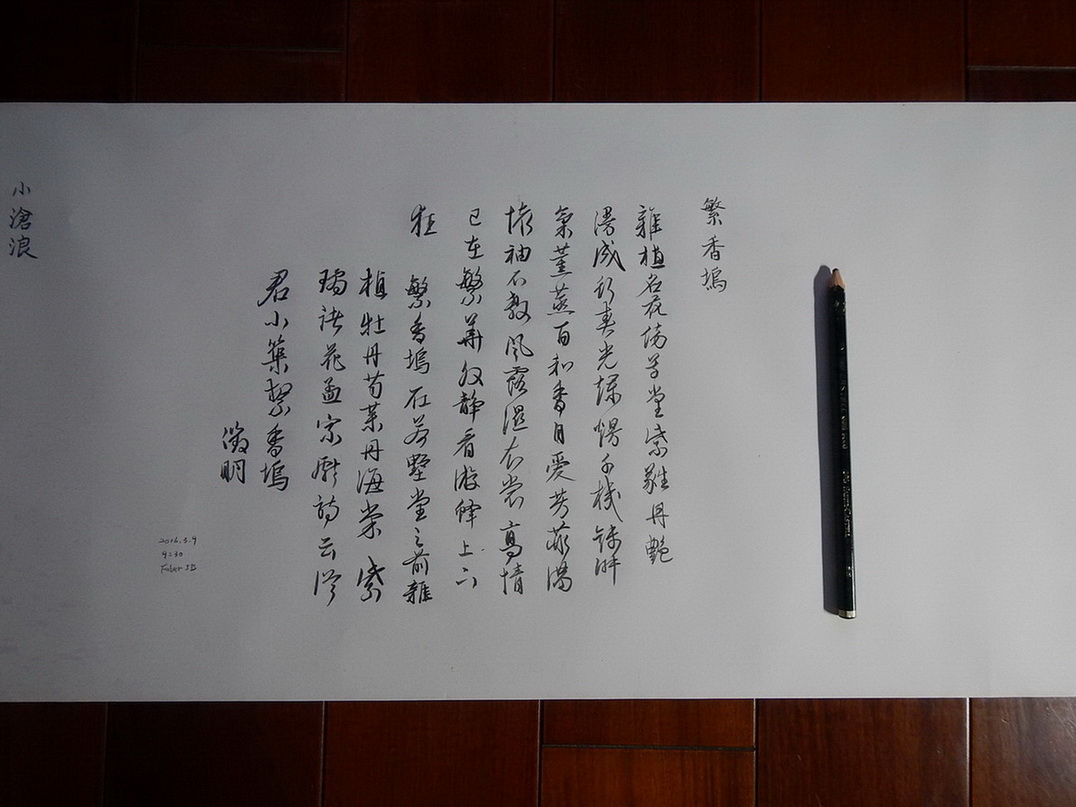 繁香塢
雜植名花傍草堂紫蕤丹艷
漫成行春光爛熳千機錦淑
氣薰蒸百和香自愛芳菲滿
懷袖不教風露濕衣裳高情
已在繁華外靜看游蜂上下
狂 繁香塢在若墅堂之前雜
植牡丹芍藥丹海棠紫
璚諸花孟宗獻詩云從
君小築繁香塢
徵明
2016.3.9
9:30
Faber
小滄浪